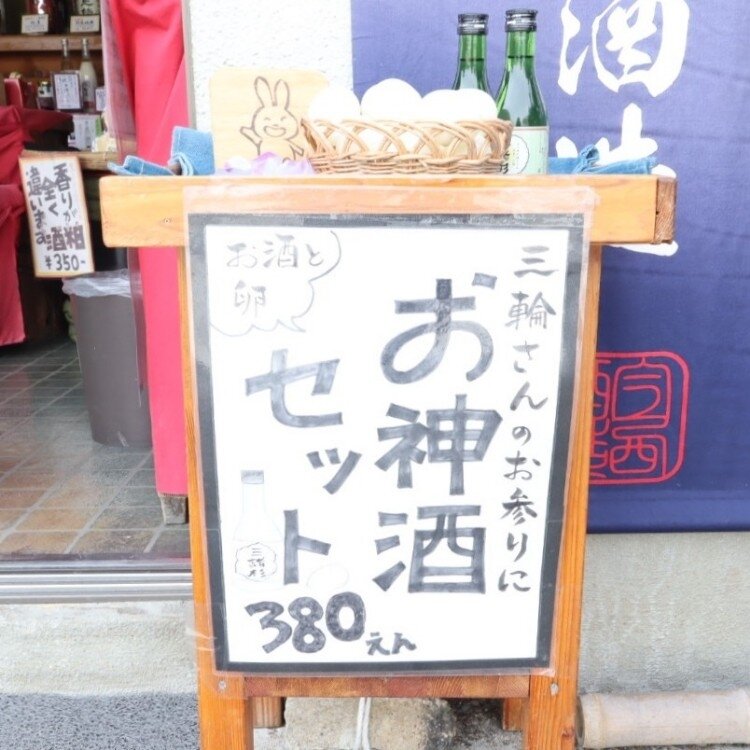 三輪さんのお参りに
お神酒
セット
お酒と
卵
380えん
三諸杉
香りが
全く
違います
酒粕
¥350-
酒造
今西